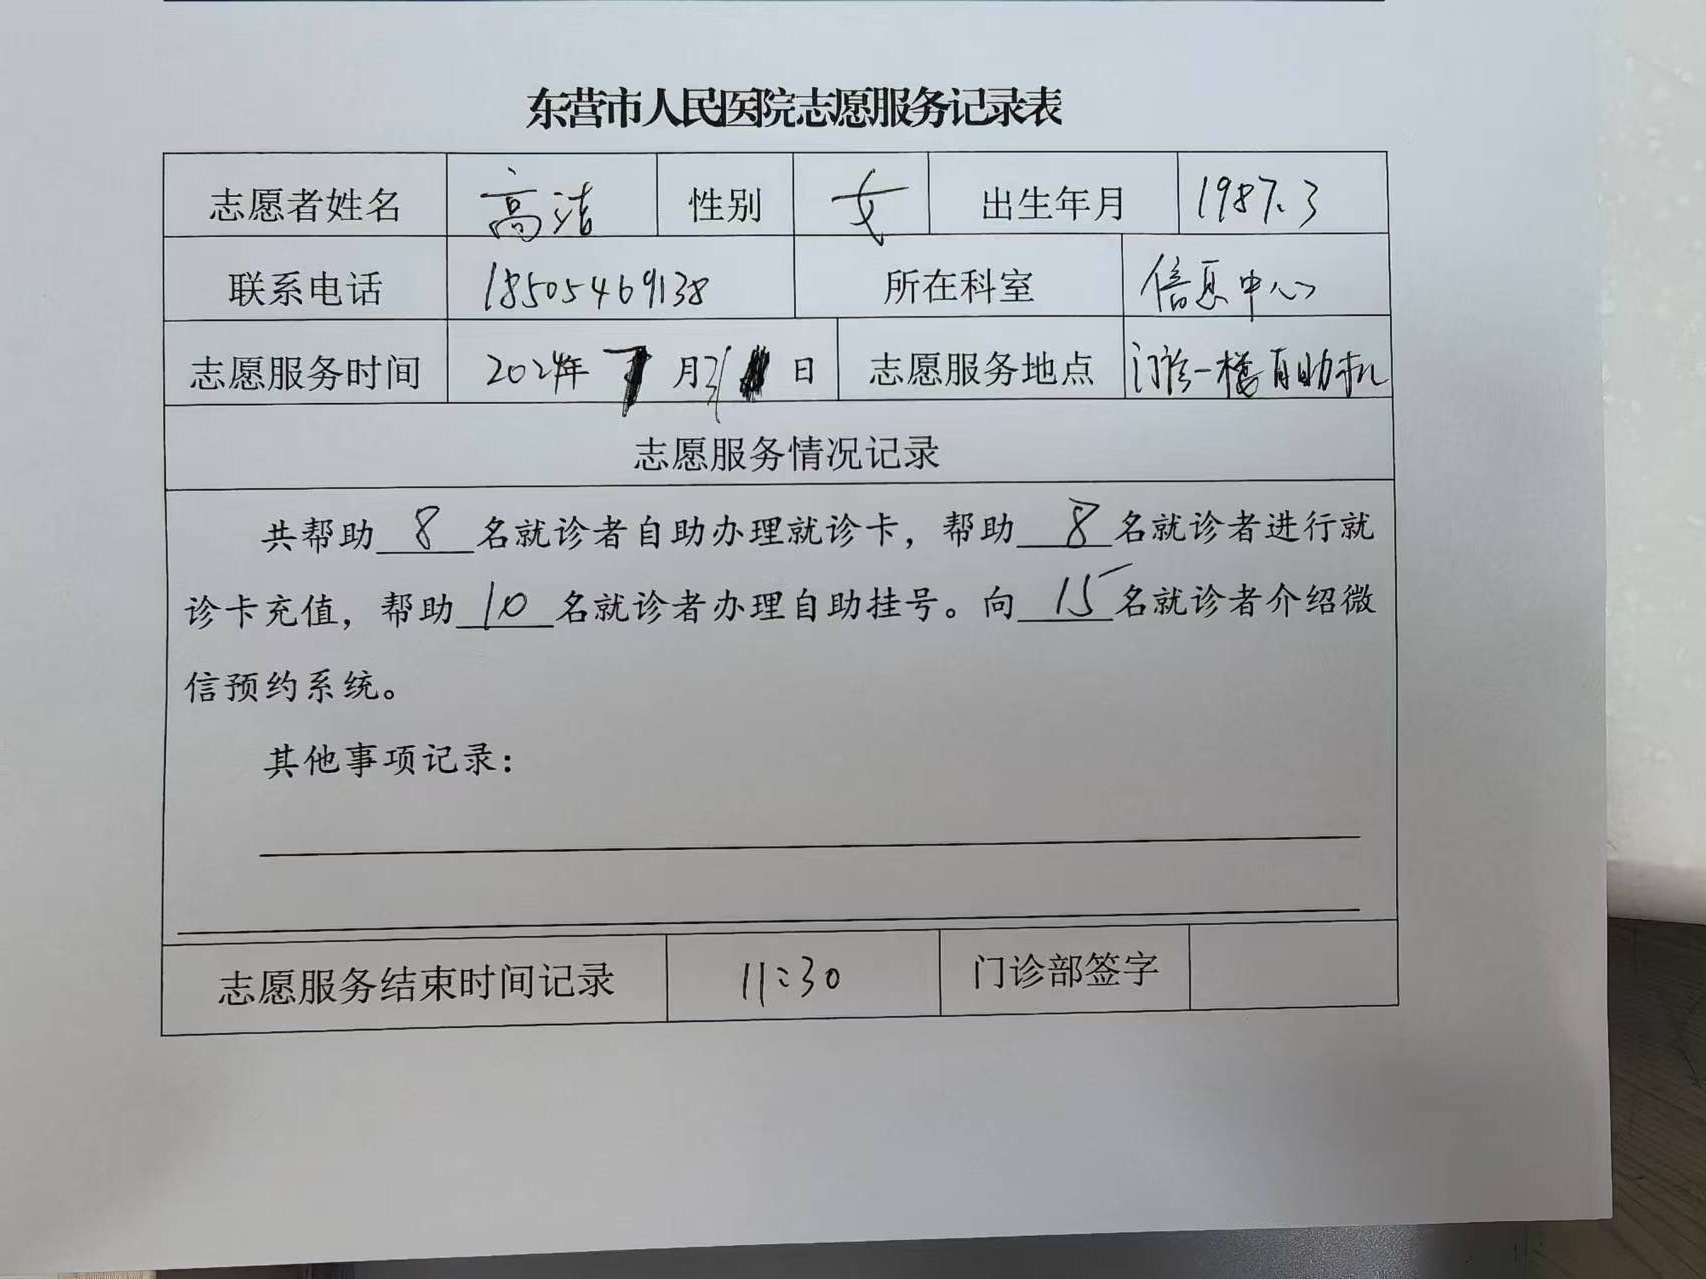 东营市人民医院志愿服务记录表
志愿者姓名 高洁 性别 女 出生年月 1987.3
联系电话 18505469138 所在科室 信息中心
志愿服务时间 2024年 7月31日 志愿服务地点 门诊一楼自助机
志愿服务情况记录
共帮助 8 名就诊者自助办理就诊卡，帮助 8 名就诊者进行就
诊卡充值，帮助 10 名就诊者办理自助挂号。向 15 名就诊者介绍微
信预约系统。
其他事项记录：
志愿服务结束时间记录 11:30 门诊部签字